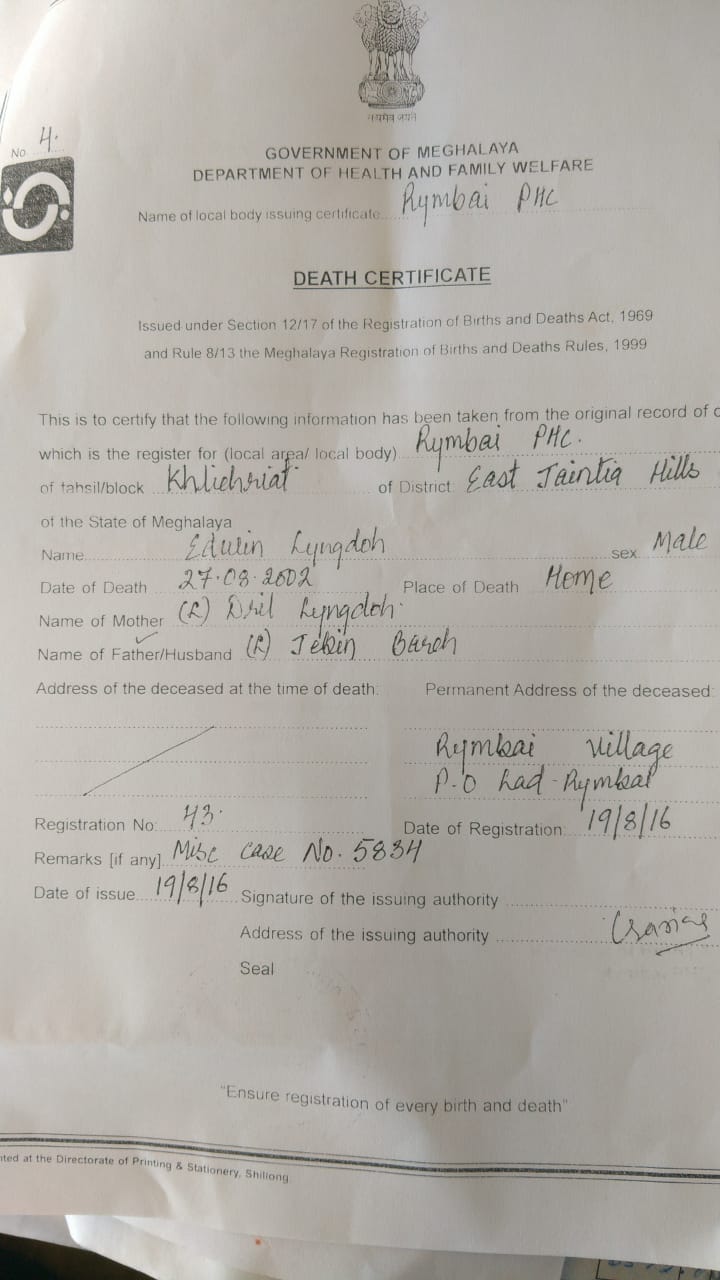 सत्यमेव जयते
No. 4.
GOVERNMENT OF MEGHALAYA
DEPARTMENT OF HEALTH AND FAMILY WELFARE
Name of local body issuing certificate Rymbai PHC
DEATH CERTIFICATE
Issued under Section 12/17 of the Registration of Births and Deaths Act, 1969
and Rule 8/13 the Meghalaya Registration of Births and Deaths Rules, 1999
This is to certify that the following information has been taken from the original record of
which is the register for (local area/ local body) Rymbai PHC.
of tahsil/block Khliehriat of District East Jaintia Hills
of the State of Meghalaya
Name Edwin Lyngdoh sex Male
Date of Death 27.08.2002 Place of Death Home
Name of Mother (L) Dril Lyngdoh
Name of Father/Husband (L) Jekin Bareh
Address of the deceased at the time of death: Permanent Address of the deceased:
Rymbai Village
P.O Lad-Rymbai
Registration No: 43. Date of Registration: 19/8/16
Remarks [if any] Misc Case No. 5834
Date of issue 19/8/16 Signature of the issuing authority
Address of the issuing authority
Seal
"Ensure registration of every birth and death"
at the Directorate of Printing & Stationery, Shillong